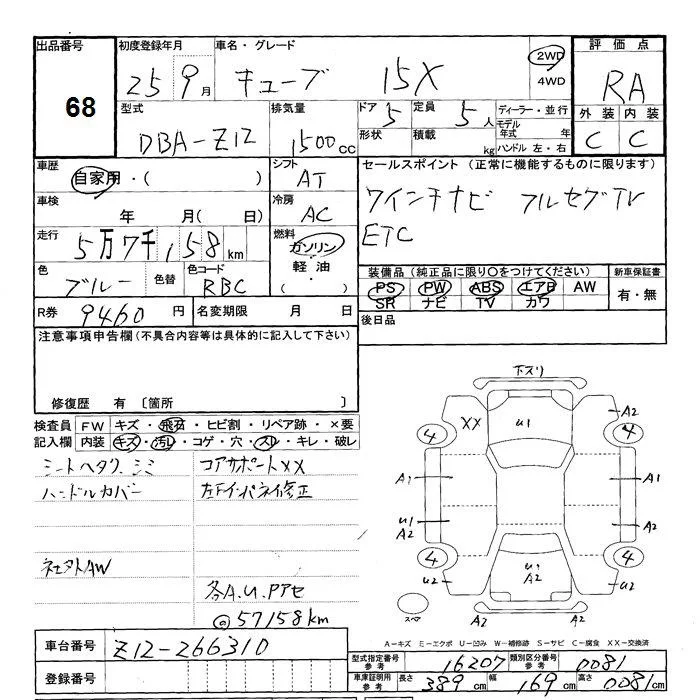 出品番号 初度登録年月 車名・グレード 評価点
68
25 9月 キューブ 15X 2WD 4WD RA
型式 排気量 ドア 定員 ディーラー・並行 外装 内装
DBA-Z12 1500cc 5 5人 モデル年式 年 C C
形状 積載 kg ハンドル 左・右
車歴 シフト セールスポイント (正常に機能するものに限ります)
自家用・( ) AT
7インチナビ フルセグTV
車検 年 月( 日) 冷房 AC
ETC
走行 5万7千158km 燃料 ガソリン・軽油・
色 ブルー 色替 色コード RBC
装備品 (純正品に限り○をつけてください) 新車保証書
PS PW ABS エアB AW 有・無
SR ナビ TV カワ
R券 9460円 名変期限 月 日 後日品
注意事項申告欄(不具合内容等は具体的に記入して下さい)
修復歴 有 〔箇所 〕
検査員記入欄 FW キズ・飛石・ヒビ割・リペア跡・×要
内装 キズ・汚レ・コゲ・穴・スレ・キレ・破レ
シートヘタリ、シミ コアサポートXX
ハンドルカバー 左Fインパネイ修正
社外AW
各A.U.Pアセ
@57158km
下スリ
XX U1 A2
4 4
A1 A1
U1 A2 A2
4 4
U2 U1 A2 U2
スペア A2 A2
A-キズ E-エクボ U-凹み W-補修跡 S-サビ C-腐食 XX-交換済
車台番号 Z12-266310
型式指定番号 参考 16207 類別区分番号 参考 0081
登録番号
車庫証明用 参考 長さ 389cm 幅 169cm 高さ 0081cm